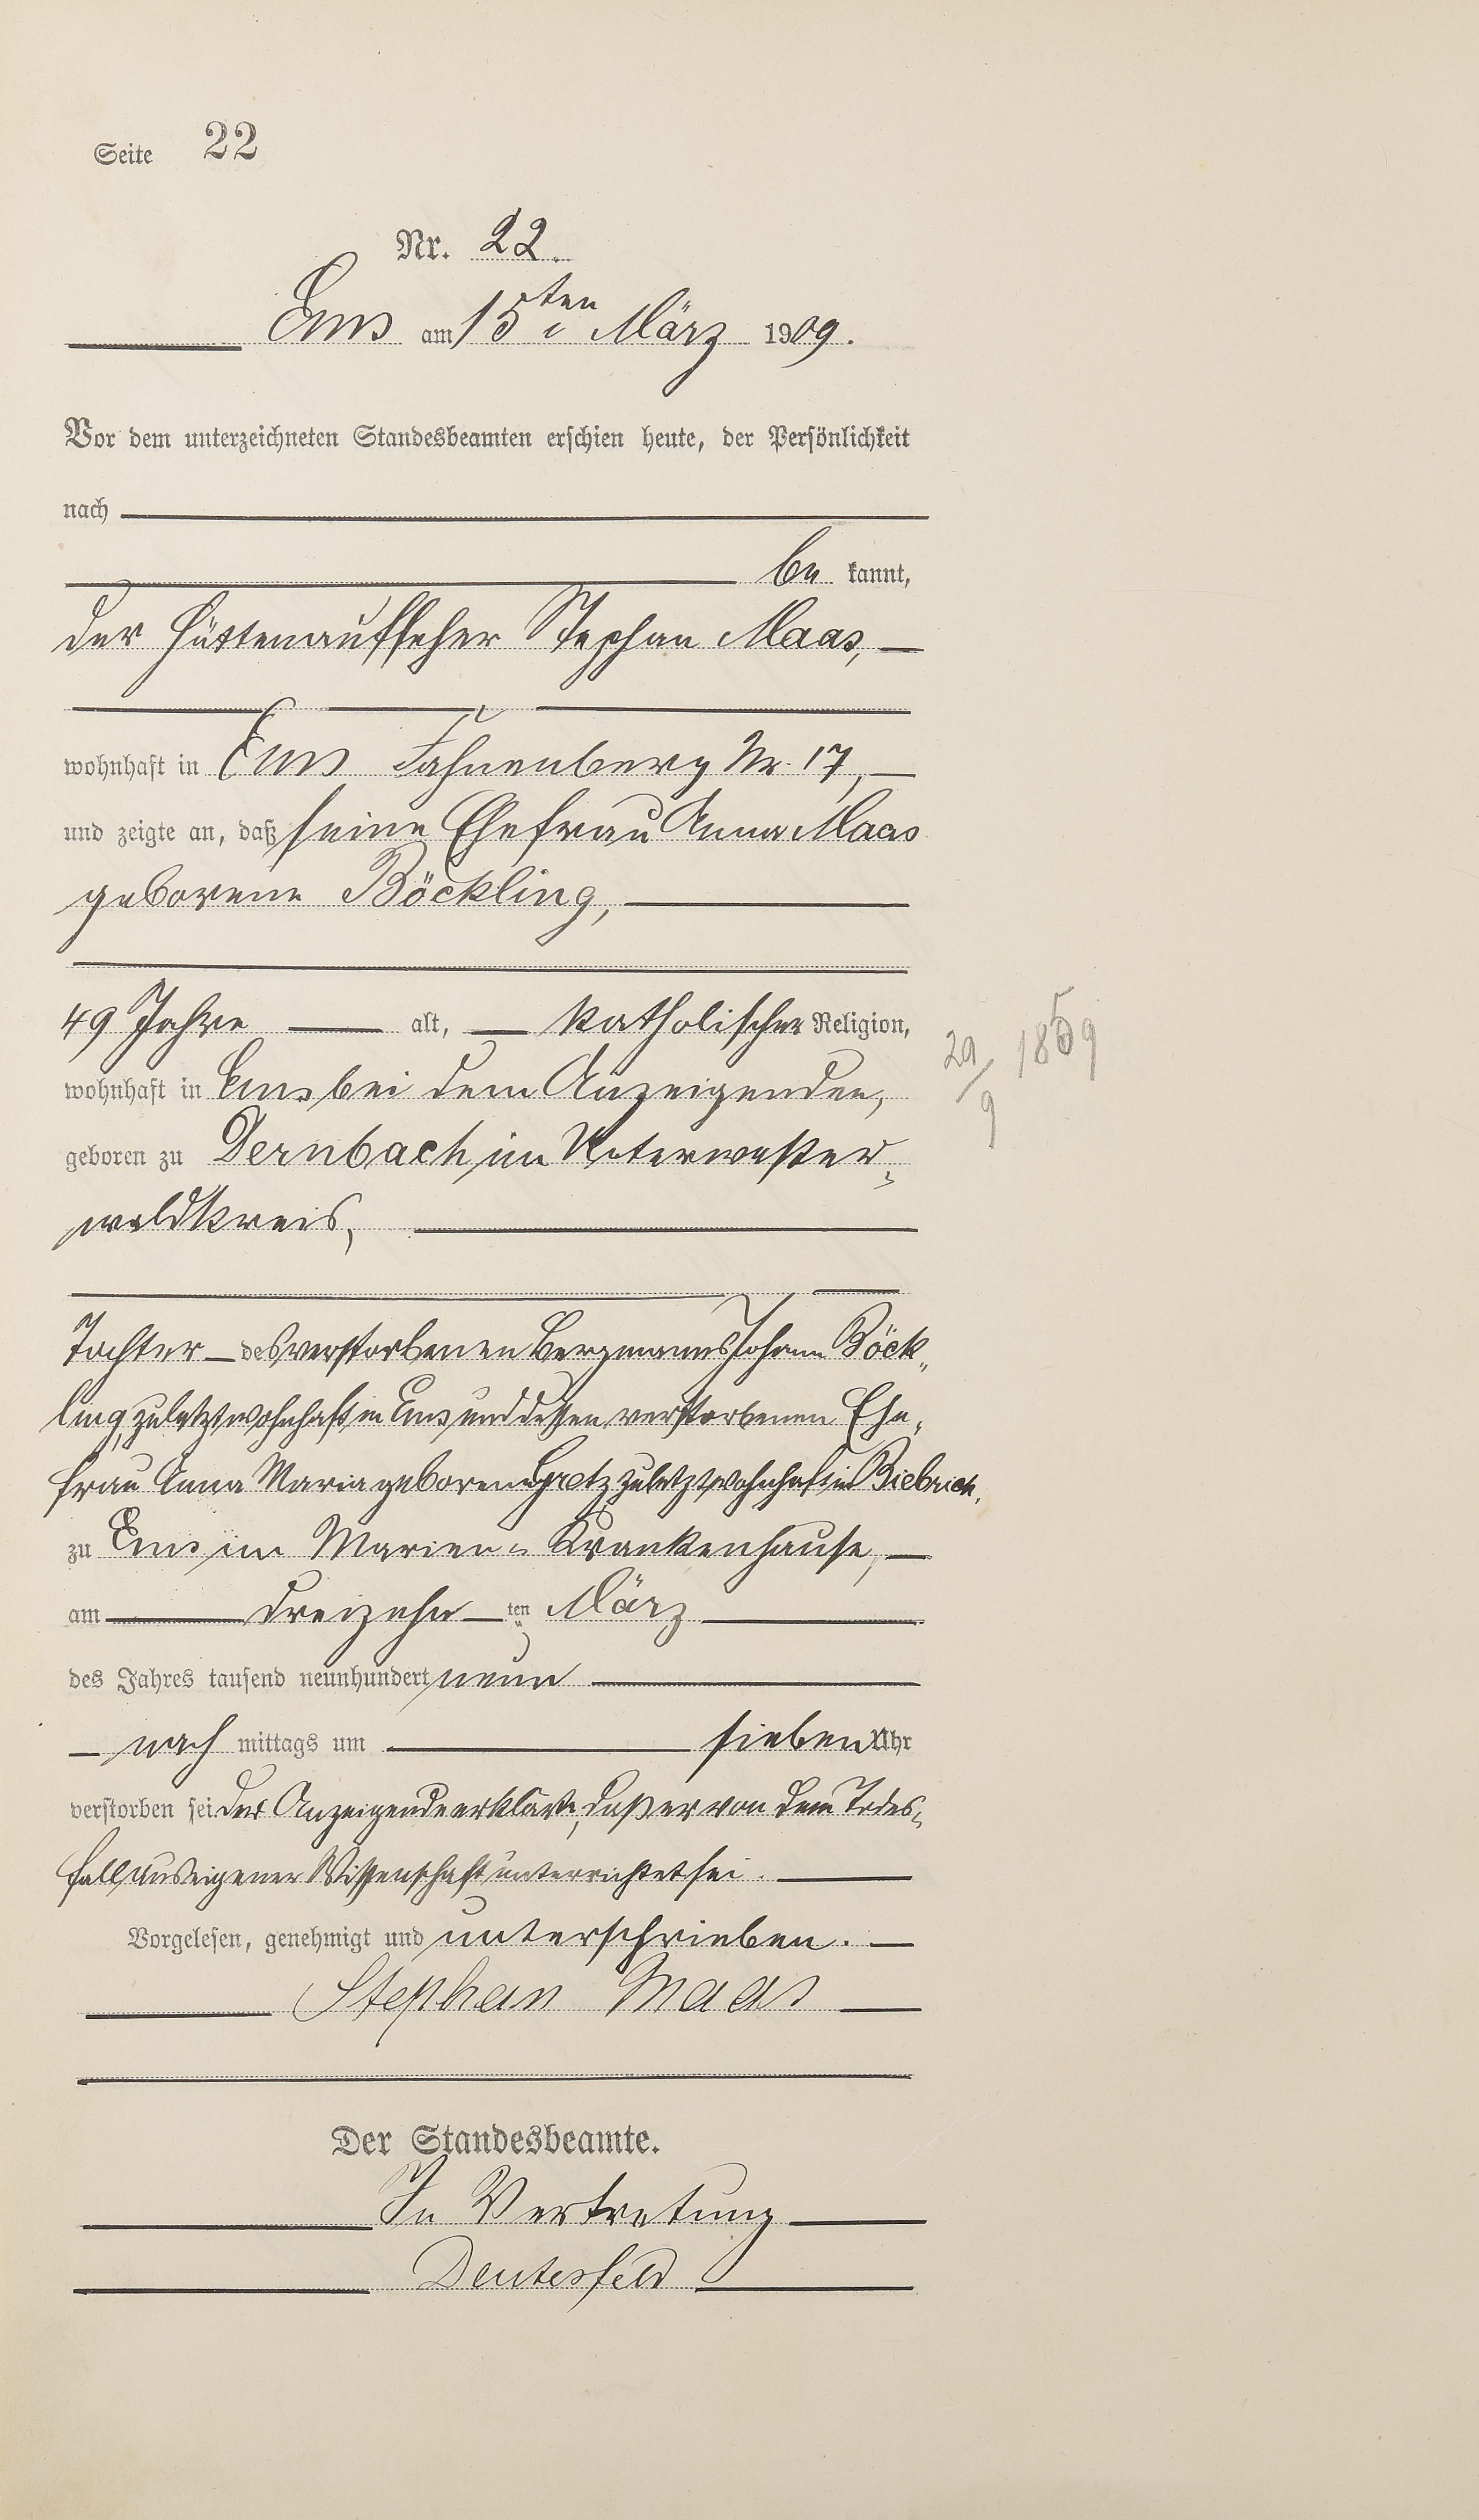 Seite 22
Nr. 22.
Ems am 15ten März 1909.
Vor dem unterzeichneten Standesbeamten erschien heute, der Persönlichkeit
nach
be kannt,
der Hüttenaufseher Stephan Maas,
wohnhaft in Ems Fahnenberg Nr. 17,
und zeigte an, daß seine Ehefrau Anna Maas
geborene Böckling,
49 Jahre alt, katholischer Religion,
29/9 1859
wohnhaft in Ems bei dem Anzeigenden,
geboren zu Dernbach im Unterwester-
waldkreis,
Tochter des verstorbenen Bergmanns Johann Böck-
ling, zuletzt wohnhaft in Ems und dessen verstorbenen Ehe-
frau Anna Maria geborene zuletzt wohnhaft in Biebrich,
zu Ems im Marien-Krankenhause,
am dreizehnten März
des Jahres tausend neunhundert neun
nach mittags um sieben Uhr
verstorben sei. Der Anzeigende erklärte, daß er von dem Todes-
fall aus eigener Wissenschaft unterrichtet sei.
Vorgelesen, genehmigt und unterschrieben.
Stephan Maas
Der Standesbeamte.
In Vertretung